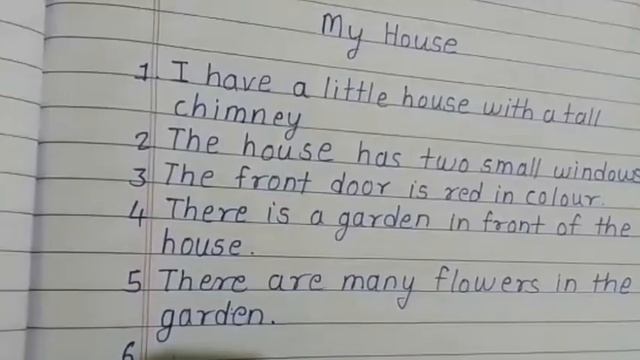 My House
1 I have a little house with a tall
chimney
2 The house has two small windows
3 The front door is red in colour.
4 There is a garden in front of the
house.
5 There are many flowers in the
garden.
6